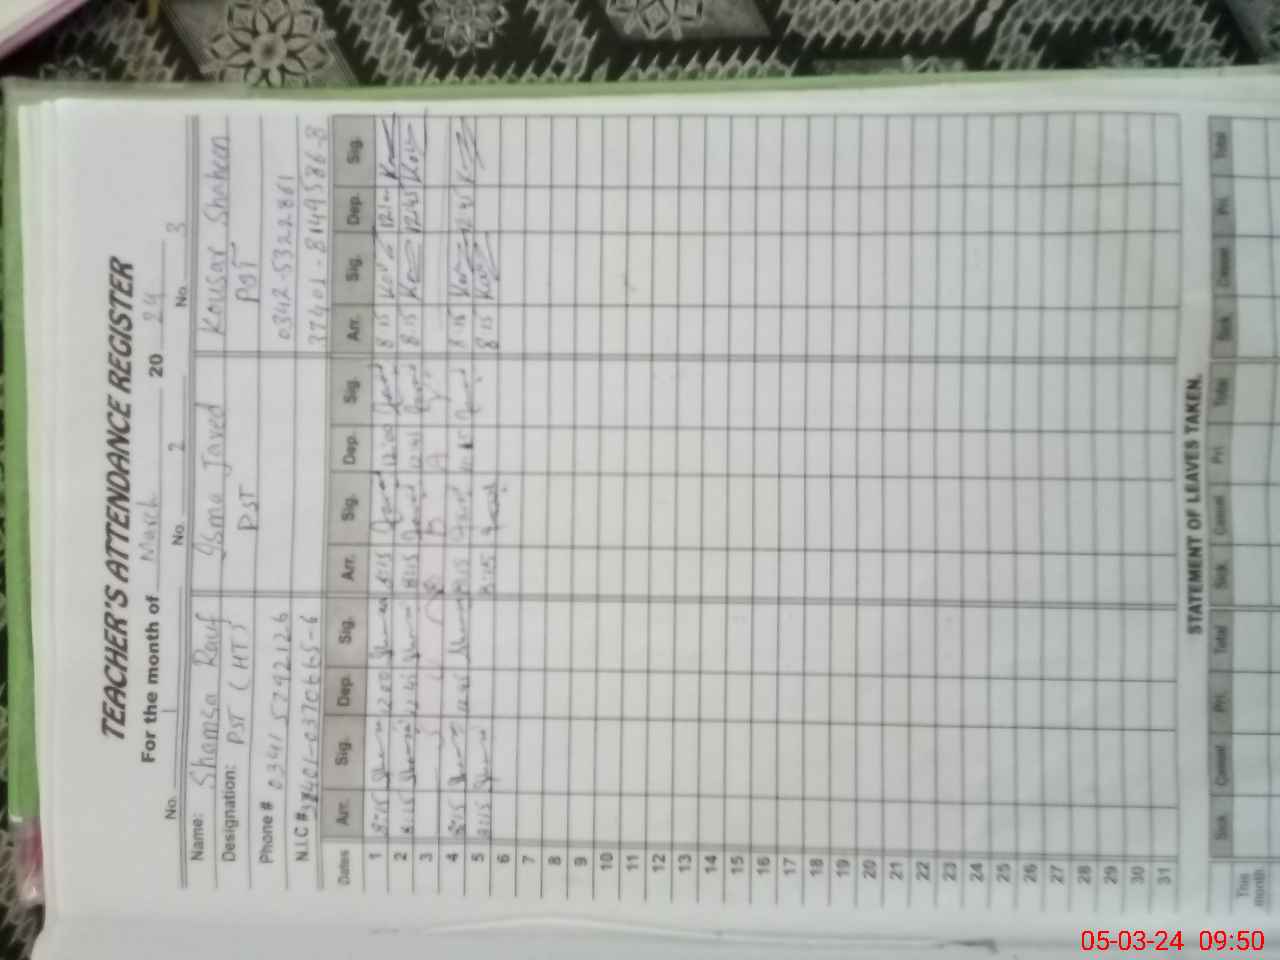 TEACHER'S ATTENDANCE REGISTER
For the month of March 2024
No. 1 No. 2 No. 3
Name: Shamsa Rauf Asma Javed Kousar Shaheen
Designation: PST (HT) PST PST
Phone # 0341 5292126 0342-5322861
N.I.C # 37401-0370665-6 37401-8149586-8
Dates Arr. Sig. Dep. Sig. Arr. Sig. Dep. Sig. Arr. Sig. Dep. Sig.
1 8:15 12:00 8:15 12:00 8:15 12:00
2 8:15 12:45 8:15 12:45 8:15 12:45
3
4 8:15 12:45 8:15 8:15 12:45
5 8:15 8:15 8:15
6
7
8
9
10
11
12
13
14
15
16
17
18
19
20
21
22
23
24
25
26
27
28
29
30
31
STATEMENT OF LEAVES TAKEN.
Sick Casual Pri. Total Sick Casual Pri. Total Sick Casual Pri. Total
This month
05-03-24 09:50